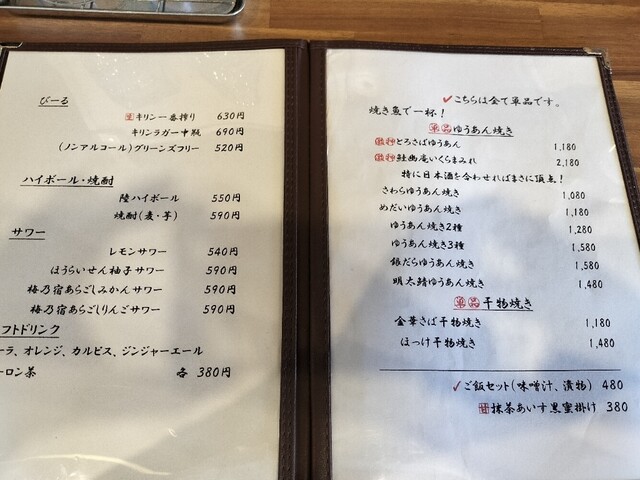 びーる
生 キリン一番搾り 630円
キリンラガー中瓶 690円
(ノンアルコール)グリーンズフリー 520円
ハイボール・焼酎
陸ハイボール 550円
焼酎(麦・芋) 590円
サワー
レモンサワー 540円
ほうらいせん柚子サワー 590円
梅乃宿あらごしみかんサワー 590円
梅乃宿あらごしりんごサワー 590円
フトドリンク
ーラ、オレンジ、カルピス、ジンジャーエール
ーロン茶 各 380円
✓こちらは全て単品です。
焼き魚で一杯!
単品 ゆうあん焼き
とろさばゆうあん 1,180
鮭幽庵いくらまみれ 2,180
特に日本酒を合わせればまさに頂点!
さわらゆうあん焼き 1,080
めだいゆうあん焼き 1,180
ゆうあん焼き2種 1,280
ゆうあん焼き3種 1,580
銀だらゆうあん焼き 1,580
明太鯖ゆうあん焼き 1,480
単品 干物焼き
金華さば干物焼き 1,180
ほっけ干物焼き 1,480
✓ご飯セット(味噌汁、漬物) 480
甘 抹茶あいす黒蜜掛け 380